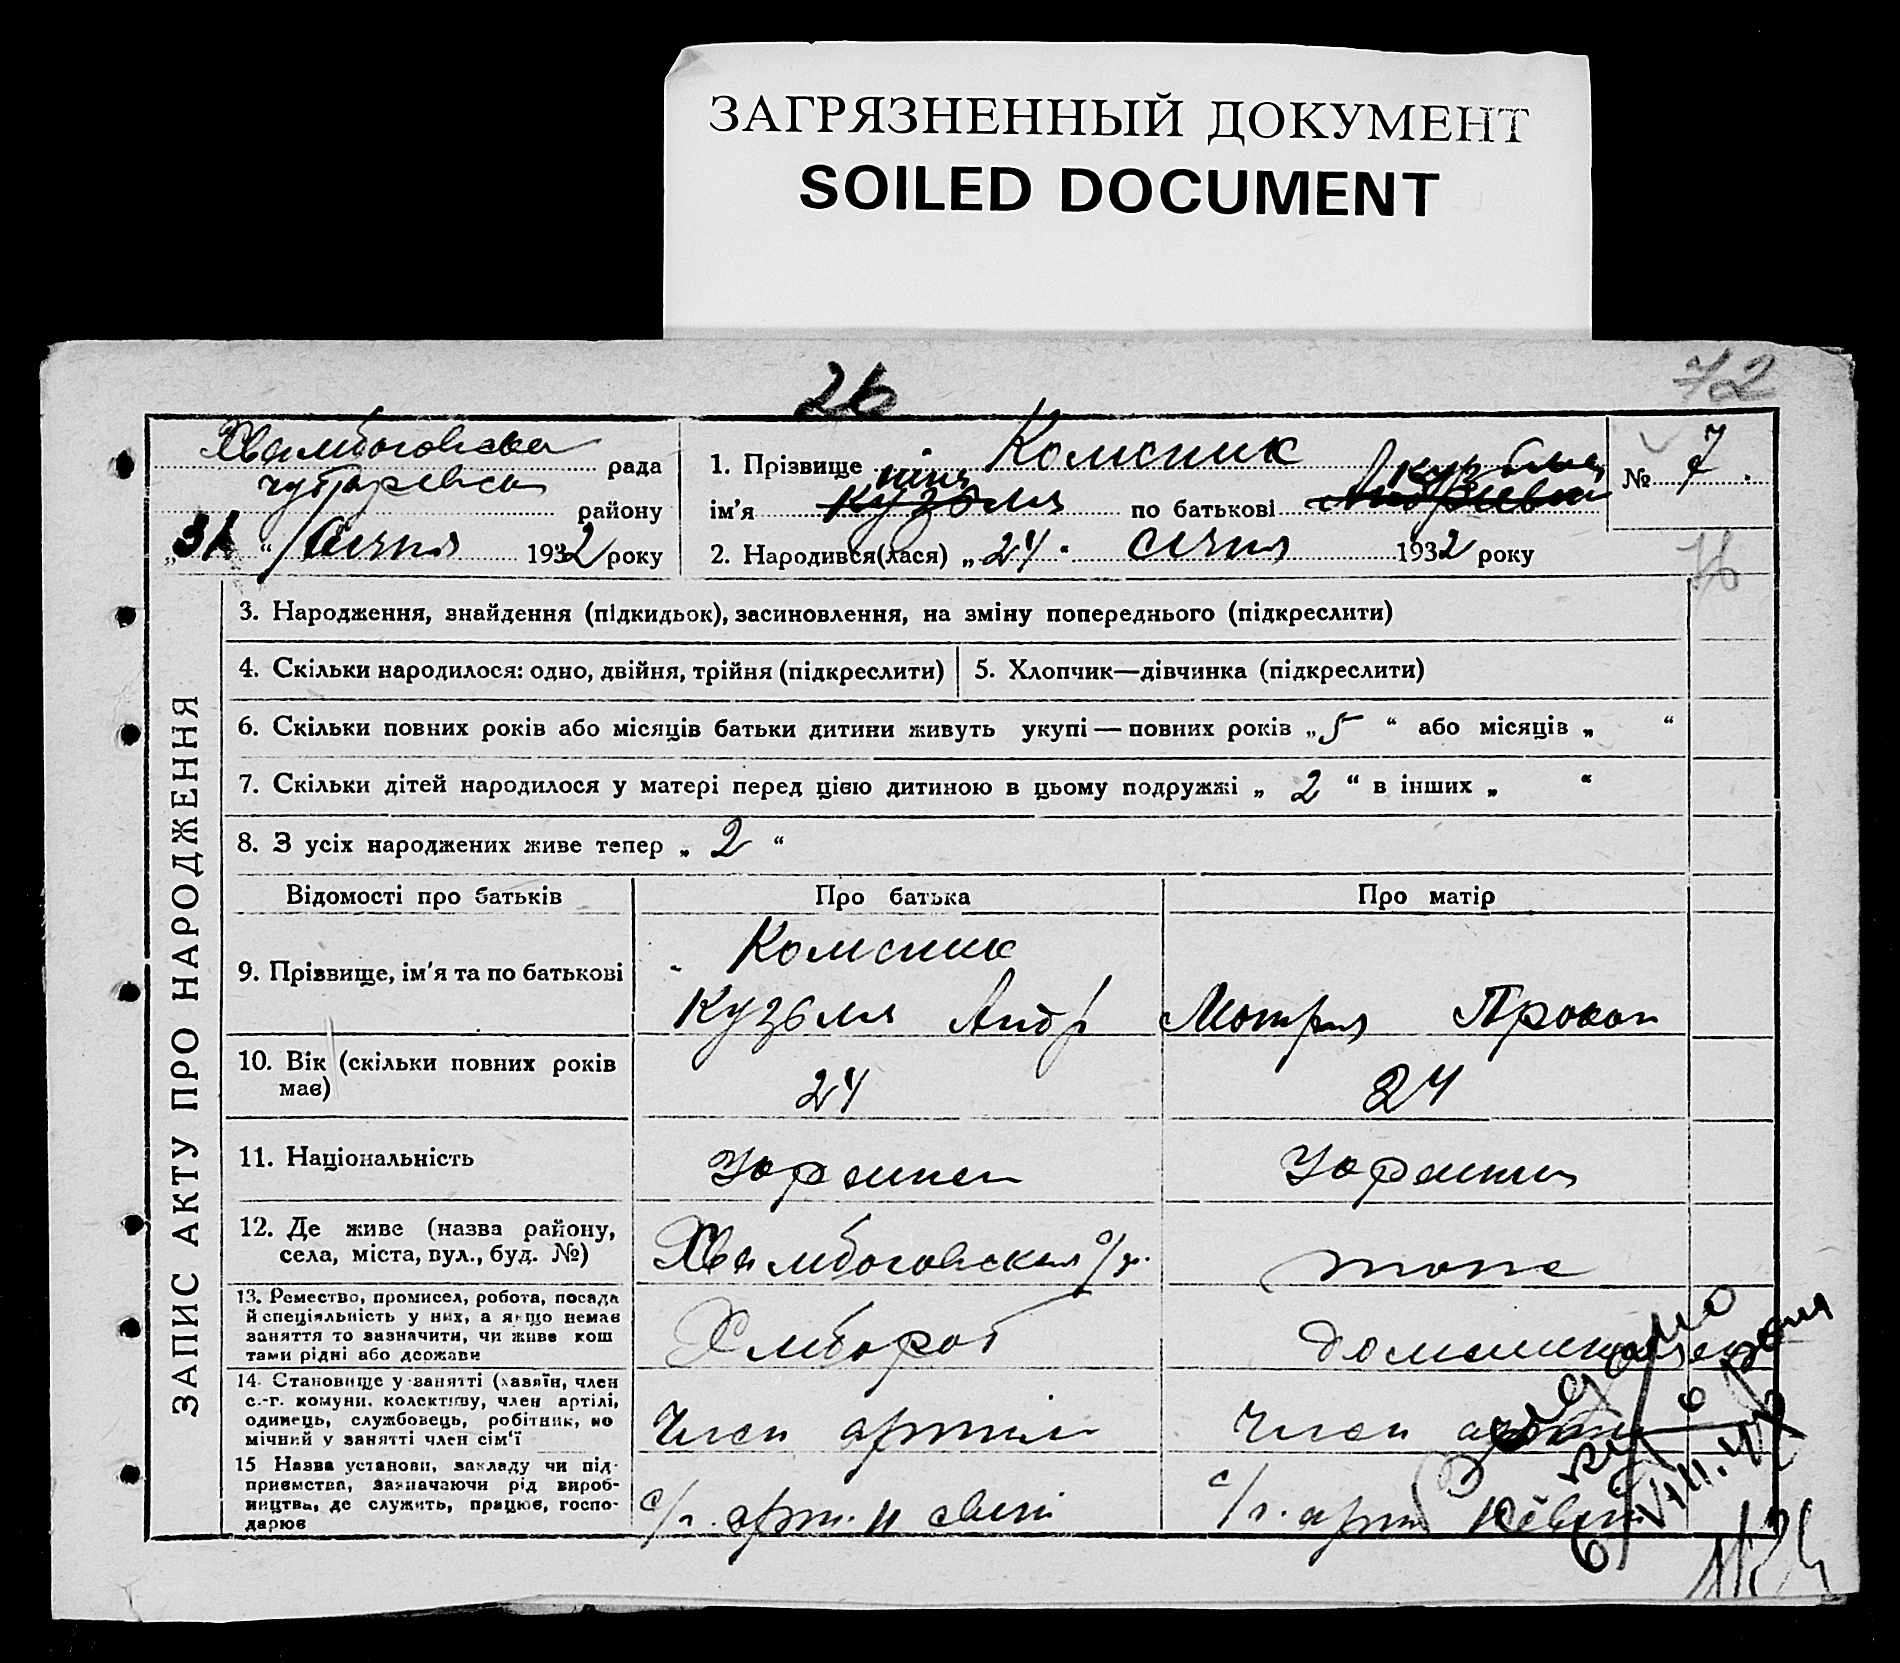 ЗАГРЯЗНЕННЫЙ ДОКУМЕНТ
SOILED DOCUMENT
26
72
рада
району
„31“ Січня 1932 року
1. Прізвище Колісник
ніна Кузь
ім'я Кузьма по батькові
2. Народився(лася) „24“ січня 1932 року
№ 7.
ЗАПИС АКТУ ПРО НАРОДЖЕННЯ
3. Народження, знайдення (підкидьок), засиновлення, на зміну попереднього (підкреслити)
4. Скільки народилося: одно, двійня, трійня (підкреслити)
5. Хлопчик—дівчинка (підкреслити)
6. Скільки повних років або місяців батьки дитини живуть укупі — повних років „5“ або місяців „ “
7. Скільки дітей народилося у матері перед цією дитиною в цьому подружжі „2“ в інших „ “
8. З усіх народжених живе тепер „2“
Відомості про батьків
Про батька
Про матір
9. Прізвище, ім'я та по батькові
Колісник
Кузьма Андр
Мотря Прокоп
10. Вік (скільки повних років
має)
24
24
11. Національність
Україн
Україн
12. Де живе (назва району,
села, міста, вул., буд. №)
тоже
13. Ремество, промисел, робота, посада
й спеціяльність у них, а якщо немає
заняття то зазначити, чи живе кош
тами рідні або держави
Хлібороб
14. Становище у занятті (хазяїн, член
с.-г. комуни, колективу, член артілі,
одинець, службовець, робітник, по
мічний у занятті член сім'ї
Член артілі
Член
15 Назва установи, закладу чи під-
приємства, зазначаючи рід вироб-
ництва, де служить, працює, госпо-
дарює
с/г. арт.
с/г. арт